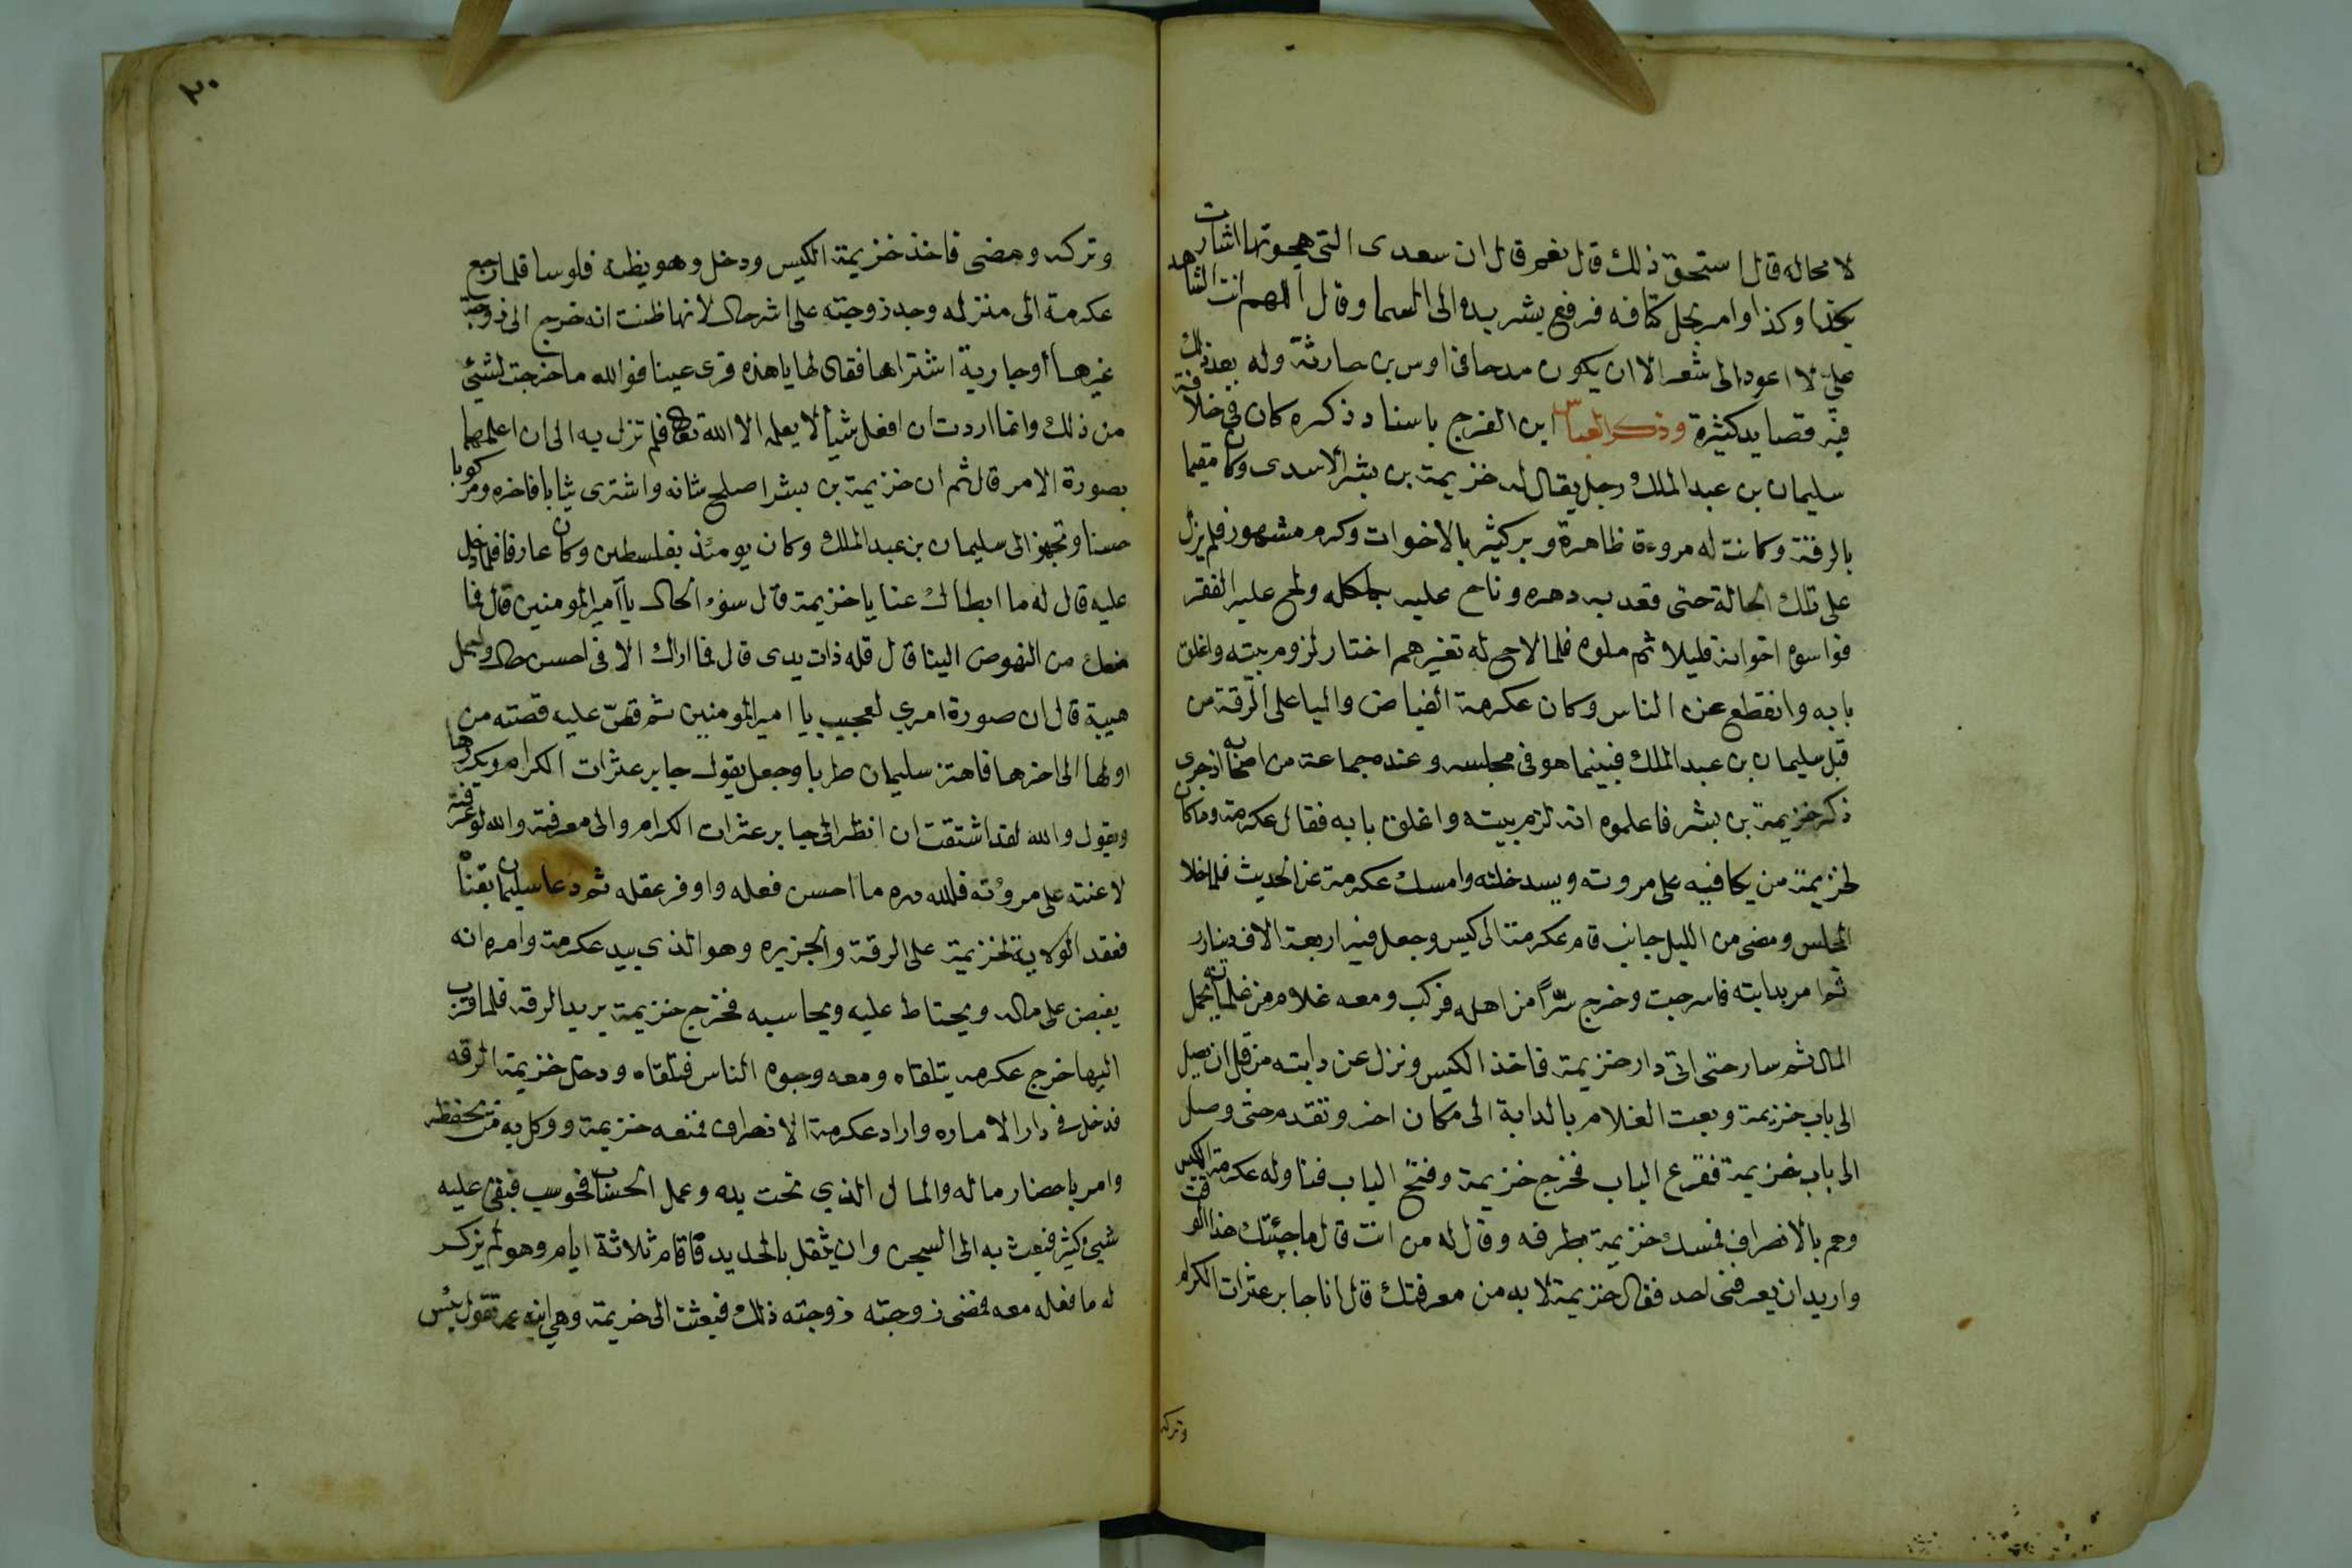 لا محاله قال استحق ذلك قال نعم قال ان سعدى التي هجوتها اشارت
بكذا وكذا وامر بحل كتافه فرفع بشر يده الى السما وقال اللهم انت الشاهد
علي لا اعود الى شعر الا ان يكون مدحا فى اوس بن حارثة وله بعد ذلك
فيه قصايد كثيرة وذكر العباس ابن الفرج باسناد ذكره كان في خلافة
سليمان بن عبد الملك رجل يقال له خزيمة بن بشر الاسدى وكان مقيما
بالرقة وكانت له مروءة ظاهرة وبر كثير بالاخوات وكرم مشهور فلم يزل
على تلك الحالة حتى قعد به دهره وناح عليه بكلكله ولح عليه الفقر
فواسوه اخوانه قليلا ثم ملوه فلما لاح له تغيرهم اختار لزوم بيته واغلق
بابه وانقطع عن الناس وكان عكرمة الفياض واليا على الرقة من
قبل سليمان بن عبد الملك فبينما هو فى مجلسه وعنده جماعة من اصحابه اذ جرى
ذكر خزيمة بن بشر فاعلموه انه لزم بيته واغلق بابه فقال عكرمة وما كان
لخزيمة من يكافيه على مروته ويسد خلته وامسك عكرمة عن الحديث فلما خلا
المجلس ومضى من الليل جانب قام عكرمة الى كيس وجعل فيه اربعة الاف دينار
ثم امر بدابته فاسرجت وخرج سرًا من اهله فركب ومعه غلام من غلمانه يحمل
المال ثم سار حتى اتى دار خزيمة فاخذ الكيس ونزل عن دابته من قبل ان يصل
الى باب خزيمة وبعت الغلام بالدابة الى مكان اخر وتقدم حتى وصل
الى باب خزيمة فقرع الباب فخرج خزيمة وفتح الباب فناوله عكرمة الكيس
وهم بالانصراف فمسك خزيمة بطرفه وقال له من انت قال ما جئتك هذا الوقت
واريد ان يعرفنى احد فقال خزيمة لا بد من معرفتك قال انا جابر عثرات الكرام
وتركه
٣٠
وتركه ومضى فاخذ خزيمة الكيس ودخل وهو يظنه فلوسا فلما رجع
عكرمة الى منزله وجد زوجته على اشر حال لانها ظنت انه خرج الى زوجة
غيرها او جارية اشتراها فقال لها يا هذه قرى عينا فوالله ما خرجت لشيئ
من ذلك وانما اردت ان افعل شيأ لا يعلمه الا الله تعالى فلم تزل به الى ان اعلمها
بصورة الامر قال ثم ان خزيمة بن بشر اصلح شانه واشترى ثيابا فاخره ومركوبا
حسنا وتجهز الى سليمان بن عبد الملك وكان يومئذ بفلسطين وكان عارفا فلما دخل
عليه قال له ما ابطاك عنا يا خزيمة قال سوء الحال يا آمير المومنين قال فما
منعك من النهوض الينا قال قله ذات يدى قال فما اراك الا فى احسن حال واجمل
هيبة قال ان صورة امري لعجيب يا امير المومنين ثم قصّ عليه قصته من
اولها الى اخرها فاهتز سليمان طربا وجعل يقول جابر عثرات الكرام ويكررها
ويقول والله لقد اشتقت ان انظر الى جابر عثرات الكرام والى معرفته والله لو عرفته
لاعنته على مروته فلله دره ما احسن فعله واوفر عقله ثم دعا سليمان بقناة
فعقد الولاية لخزيمة على الرقة والجزيره وهو الذي بيد عكرمة وامره انه
يقبض على ماله ويحتاط عليه ويحاسبه فخرج خزيمة يريد الرقة فلما قرب
اليها خرج عكرمه يتلقاه ومعه وجوه الناس فتلقاه ودخل خزيمة الرقه
فدخل في دار الاماره واراد عكرمة الانصراف فمنعه خزيمة ووكل به من يحفظه
وامر باحضار ماله والمال الذي تحت يده وعمل الحساب فحوسب فبقى عليه
شيئ كثير فبعث به الى السجن وان يثقل بالحديد فاقام ثلاثة ايام وهو لم يذكر
له ما فعله معه فمضى زوجته زوجته ذلك فبعثت الى خزيمة وهي ابنه عمه تقول بئس